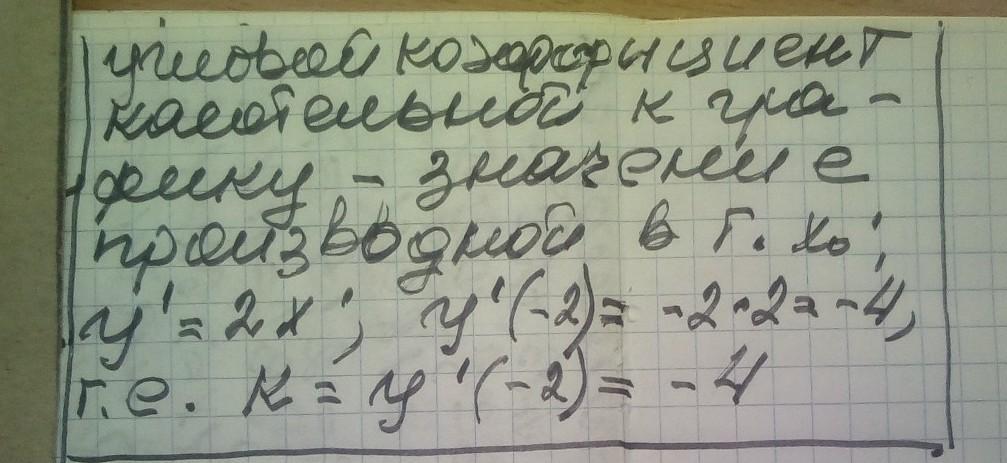 угловой коэффициент
касательной к гра-
фику - значение
производной в т. x₀;
y' = 2x; y'(-2) = -2·2 = -4,
т.е. k = y'(-2) = -4